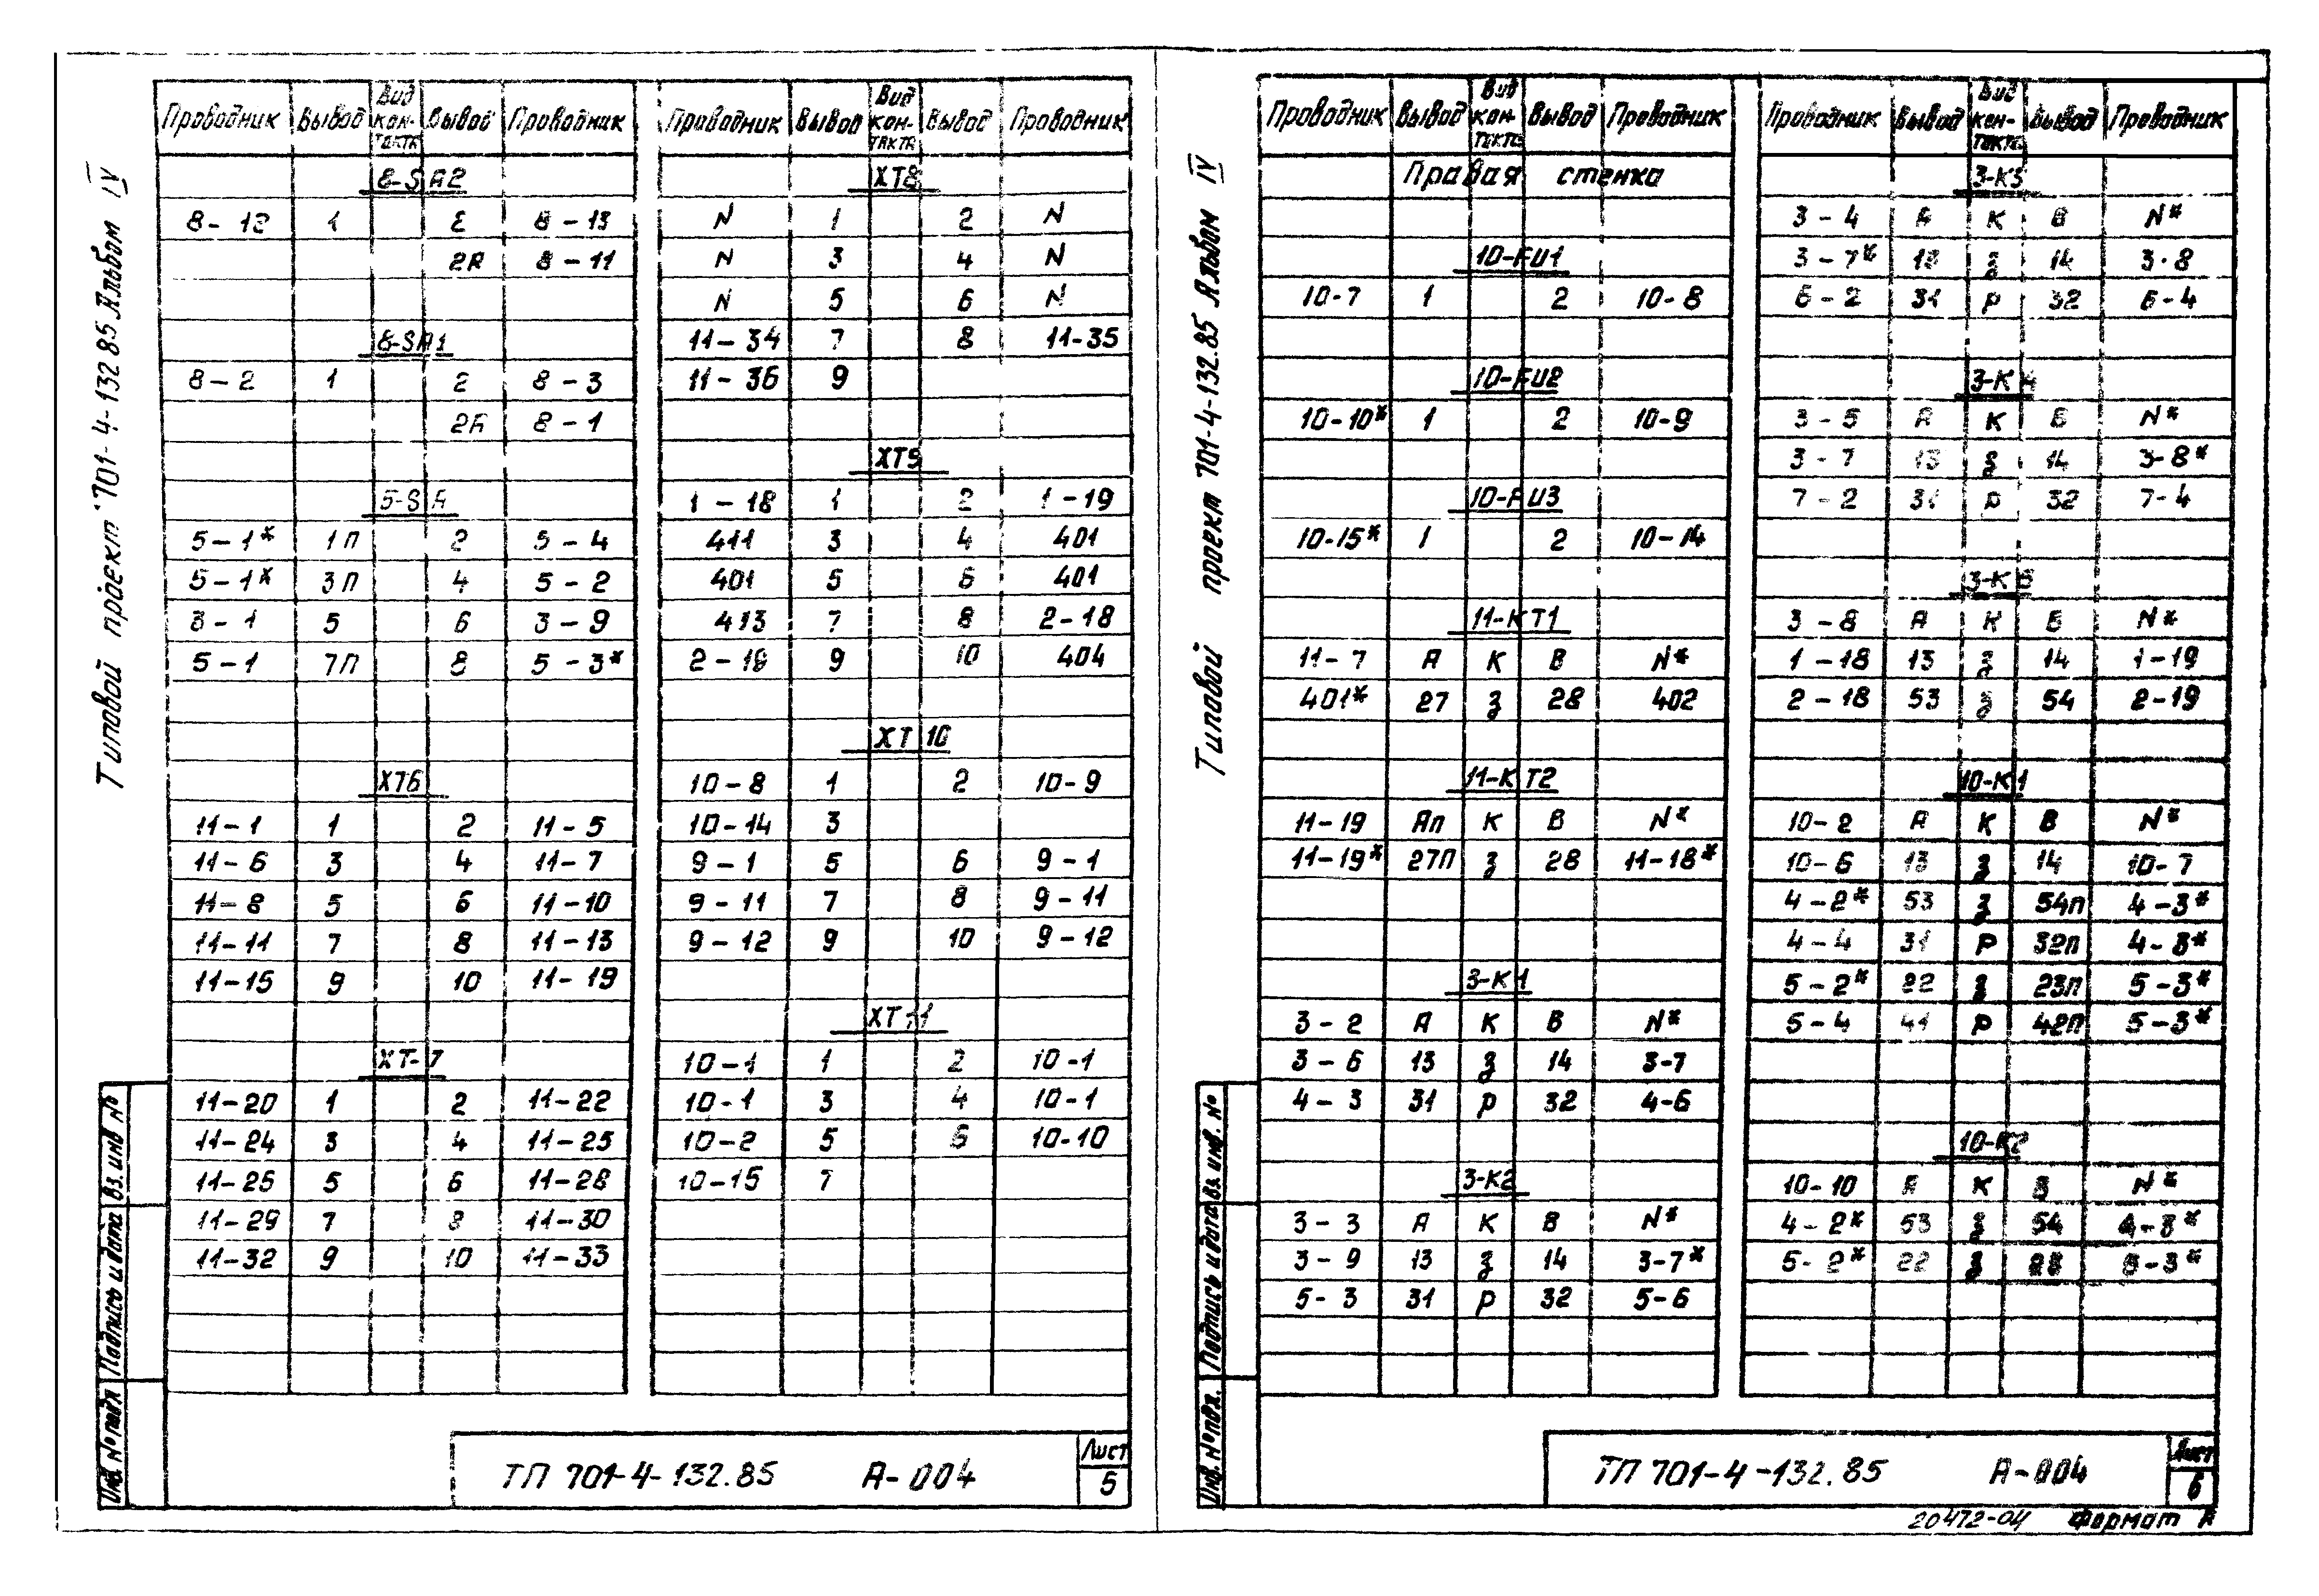 Типовой проект 701-4-132.85 Альбом IV
Проводник Вывод Вид контакта Вывод Проводник
8-SA2
8-12 1 2 8-13
2A 8-11
8-SA1
8-2 1 2 8-3
2A 8-1
5-SA
5-1* 1П 2 5-4
5-1* 3П 4 5-2
3-1 5 6 3-9
5-1 7П 8 5-3*
XT6
11-1 1 2 11-5
11-6 3 4 11-7
11-8 5 6 11-10
11-11 7 8 11-13
11-15 9 10 11-19
XT-7
11-20 1 2 11-22
11-24 3 4 11-25
11-26 5 6 11-28
11-29 7 8 11-30
11-32 9 10 11-33
Проводник Вывод Вид контакта Вывод Проводник
XT8
N 1 2 N
N 3 4 N
N 5 6 N
11-34 7 8 11-35
11-36 9
XT9
1-18 1 2 1-19
411 3 4 401
401 5 6 401
413 7 8 2-18
2-19 9 10 404
XT10
10-8 1 2 10-9
10-14 3
9-1 5 6 9-1
9-11 7 8 9-11
9-12 9 10 9-12
XT11
10-1 1 2 10-1
10-1 3 4 10-1
10-2 5 6 10-10
10-15 7
Инв. № подл Подпись и дата Вз. инв №
ТП 701-4-132.85 А-004
Лист
5
Типовой проект 701-4-132.85 Альбом IV
Проводник Вывод Вид контакта Вывод Проводник
Правая стенка
10-FU1
10-7 1 2 10-8
10-FU2
10-10* 1 2 10-9
10-FU3
10-15* 1 2 10-14
11-KT1
11-7 А К В N*
401* 27 З 28 402
11-KT2
11-19 Ап К В N*
11-19* 27П З 28 11-18*
3-K1
3-2 А К В N*
3-6 13 З 14 3-7
4-3 31 Р 32 4-6
3-K2
3-3 А К В N*
3-9 13 З 14 3-7*
5-3 31 Р 32 5-6
Проводник Вывод Вид контакта Вывод Проводник
3-K3
3-4 А К В N*
3-7* 13 З 14 3-8
6-2 31 Р 32 6-4
3-K4
3-5 А К Б N*
3-7 13 З 14 3-8*
7-2 31 Р 32 7-4
3-K5
3-8 А К Б N*
1-18 13 З 14 1-19
2-18 53 З 54 2-19
10-K1
10-2 А К В N*
10-6 13 З 14 10-7
4-2* 53 З 54П 4-3*
4-4 31 Р 32П 4-3*
5-2* 22 З 23П 5-3*
5-4 41 Р 42П 5-3*
10-K2
10-10 А К В N*
4-2* 53 З 54 4-3*
5-2* 22 З 5-3*
Инв. № подл. Подпись и дата Вз. инв. №
ТП 701-4-132.85 А-004
Лист
6
20472-04 Формат А